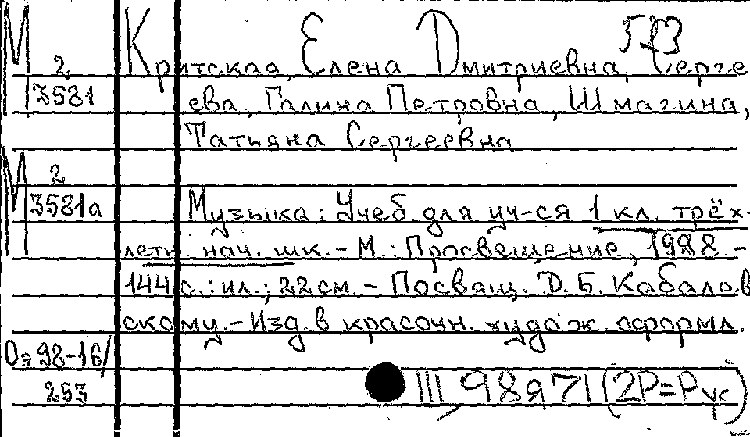 523
М 2
3581
Критская, Елена Дмитриевна, Серге
ева, Галина Петровна, Шмагина,
Татьяна Сергеевна
М 2
3581а
Музыка: Учеб. для уч-ся 1 кл. трёх-
летн. нач. шк. - М.: Просвещение, 1998. -
144 с.: ил.; 22 см. - Посвящ. Д. Б. Кабалев
скому. - Изд. в красочн. худож. оформл.
98-16/
253
III, 98я71 (2Р=Рус)